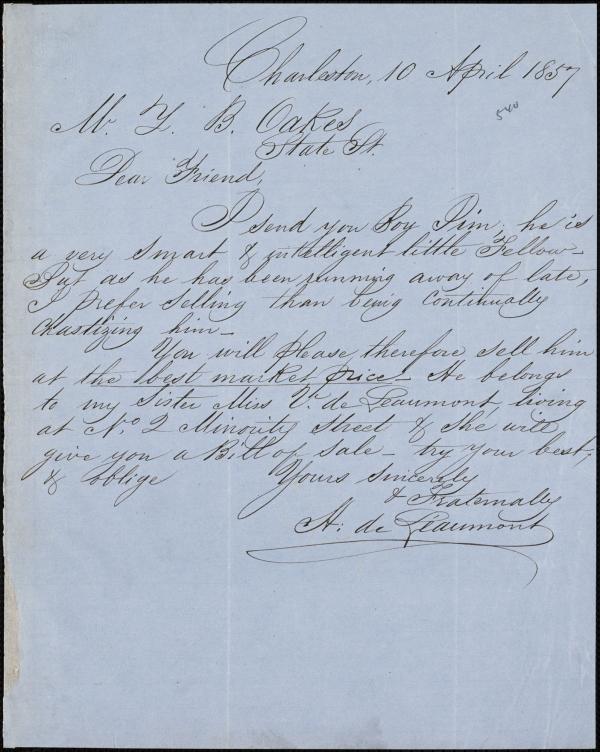 Charleston, 10 April 1857
540
Mr. Z. B. Oakes
State St.
Dear Friend,
I send you Boy Jim, he is
a very smart & intelligent little Fellow -
But as he has been running away of late,
I prefer selling than being Continually
Chastizing him -
You will please, therefore, sell him
at the best market price - He belongs
to my Sister Miss V. de Leaumont, living
at No. 2 Minority Street & she will
give you a Bill of Sale - try your best,
& oblige Yours Sincerely
& Fraternally
H. de Leaumont